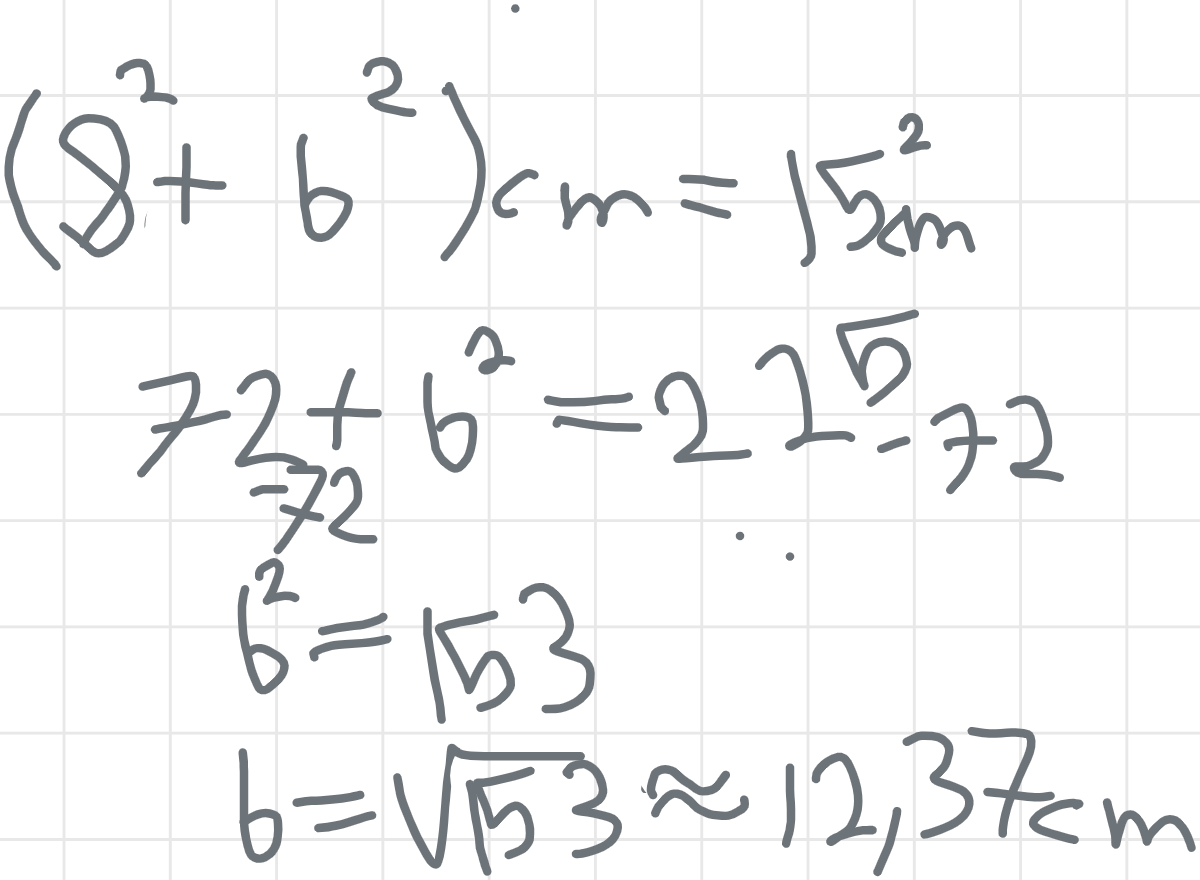 (8² + b²)cm = 15²cm
72 + b² = 225 - 72
-72
b² = 153
b = √153 ≈ 12,37cm